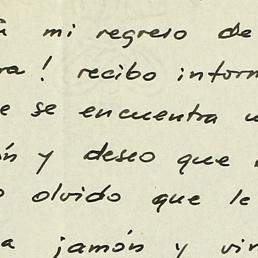 mi regreso de
! recibo inform
e se encuentra
y deseo que
olvido que le
a jamón y vin